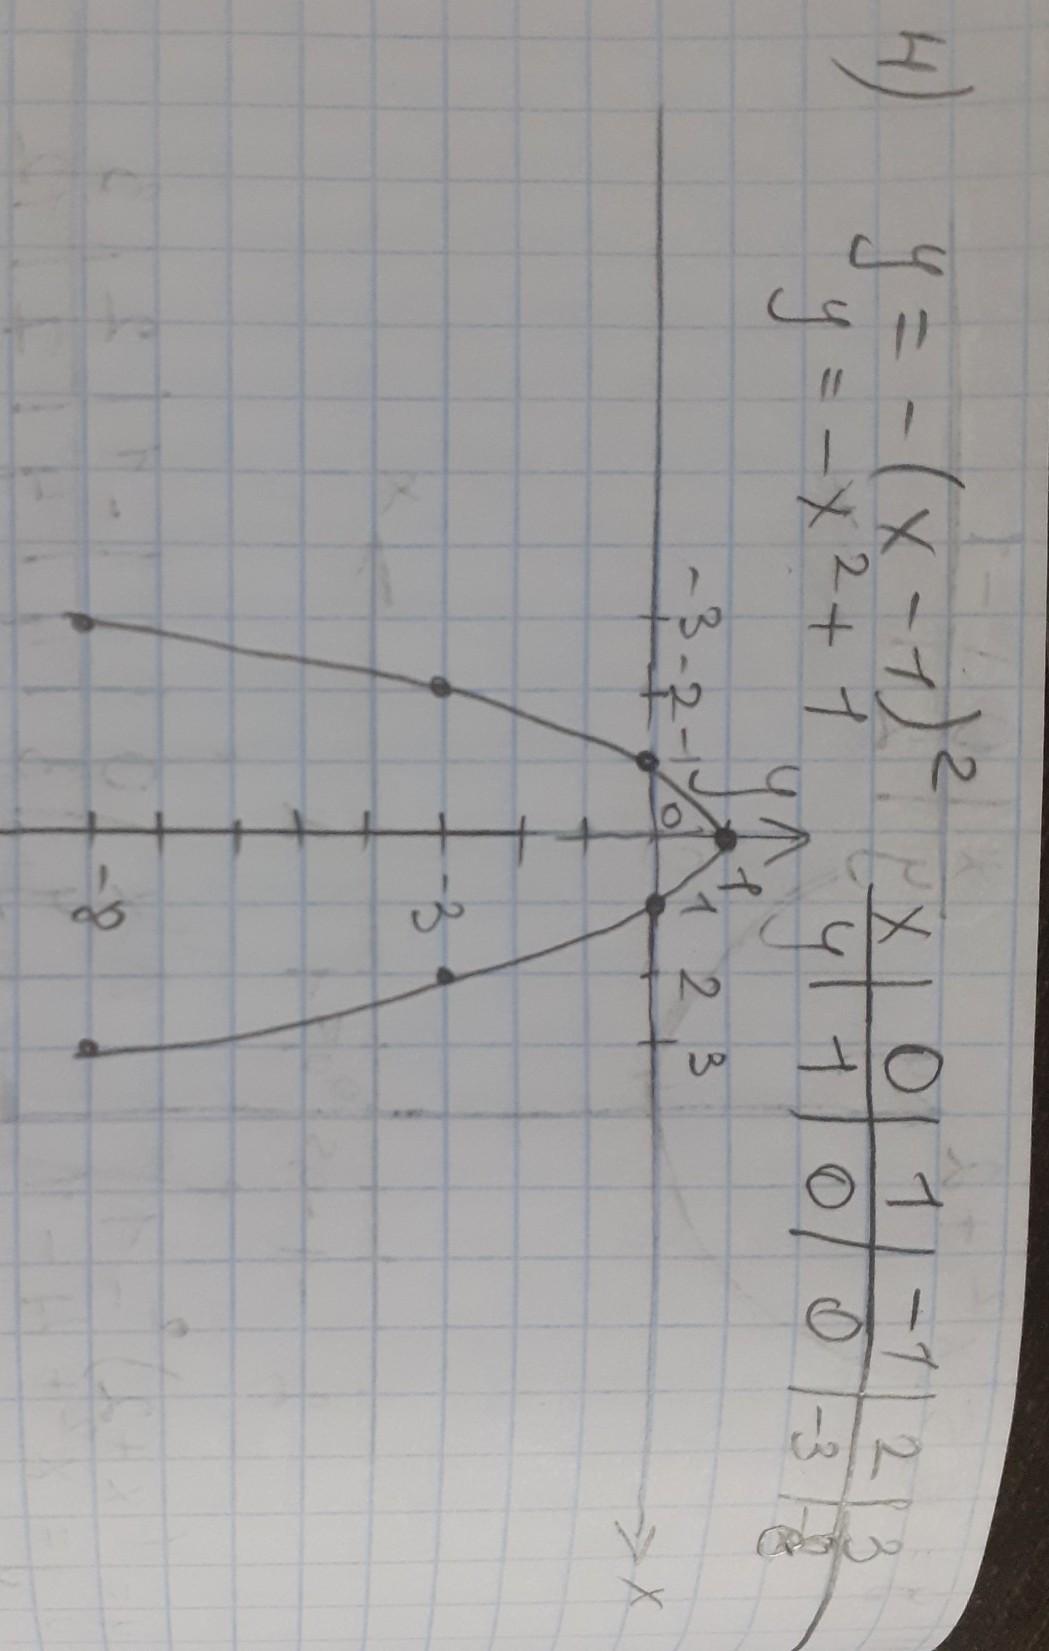 4) y = -(x - 1)²
y = -x² + 1
x | 0 | 1 | -1 | 2 | 3
y | 1 | 0 | 0 | -3 | -8
y
1
-3 -2 -1 0 1 2 3
x
-3
-8